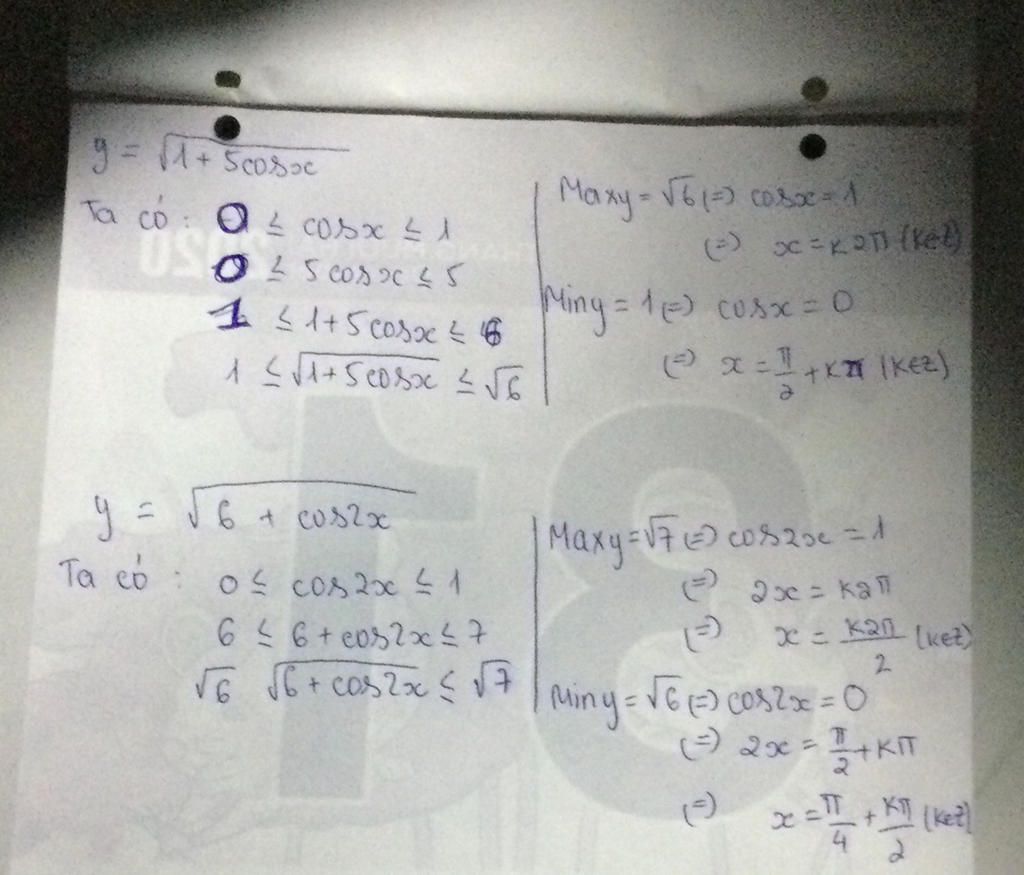 y = √1 + 5cosx
Ta có : 0 ≤ cosx ≤ 1
0 ≤ 5cosx ≤ 5
1 ≤ 1+5cosx ≤ 6
1 ≤ √1+5cosx ≤ √6
Maxy = √6 (=) cosx = 1
(=) x = k2π (k∈Z)
Miny = 1 (=) cosx = 0
(=) x = π/2 + kπ (k∈Z)
y = √6 + cos2x
Ta có : 0 ≤ cos2x ≤ 1
6 ≤ 6 + cos2x ≤ 7
√6 √6+cos2x ≤ √7
Maxy = √7 (=) cos2x = 1
(=) 2x = k2π
(=) x = k2π/2 (k∈Z)
Miny = √6 (=) cos2x = 0
(=) 2x = π/2 + kπ
(=) x = π/4 + kπ/2 (k∈Z)
2020
31